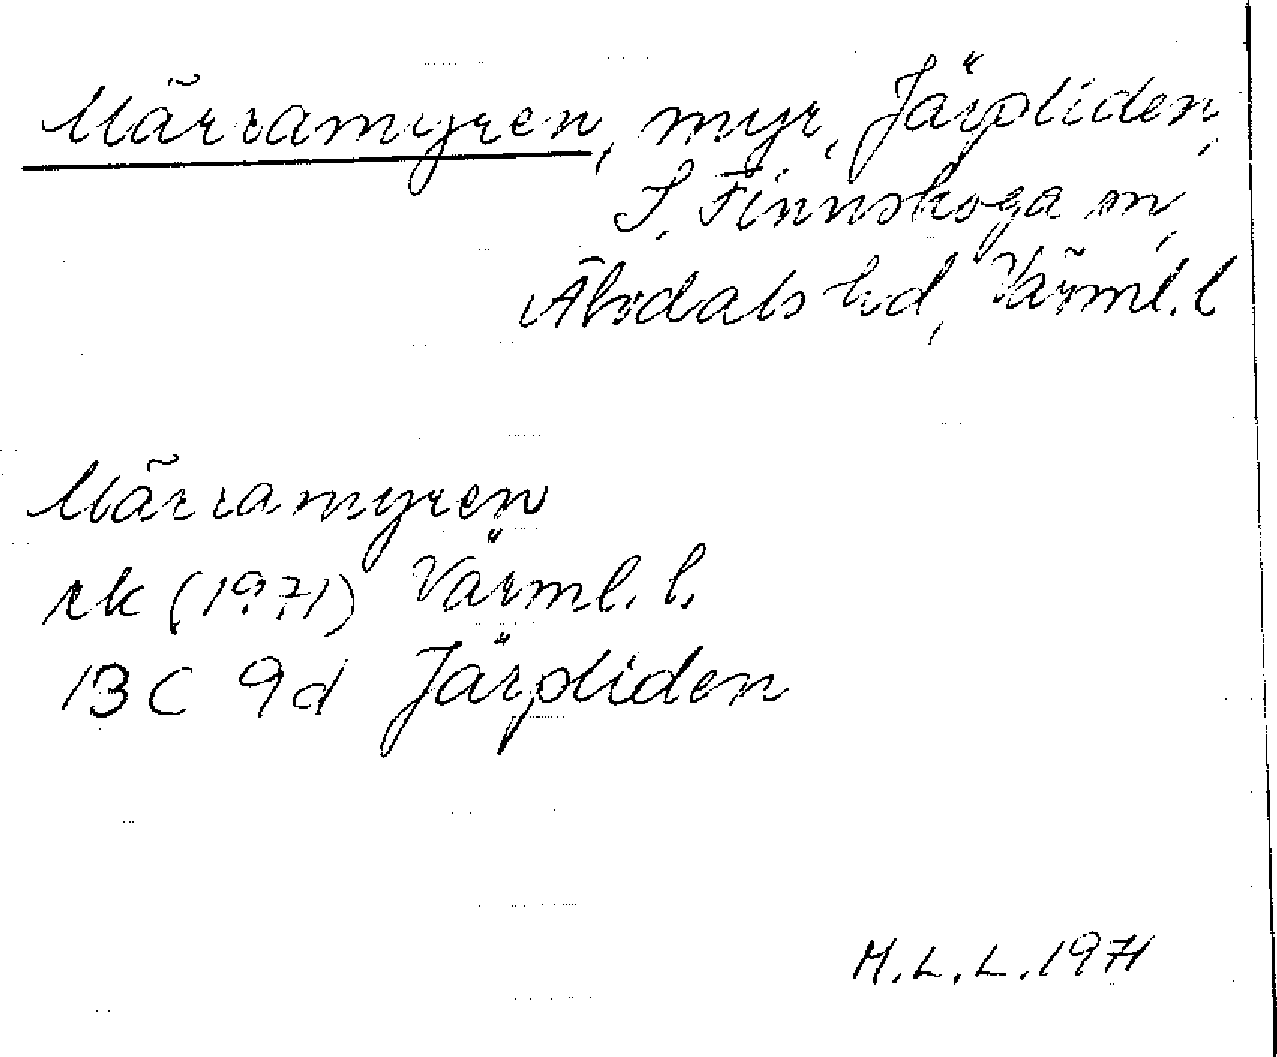 Märramyren, myr, Järpliden,
S. Finnskoga sn,
Älvdals hd, Värml. l
Märramyren
rk (1971) Värml. l.
13 C 9d Järpliden
M.L.L. 1971